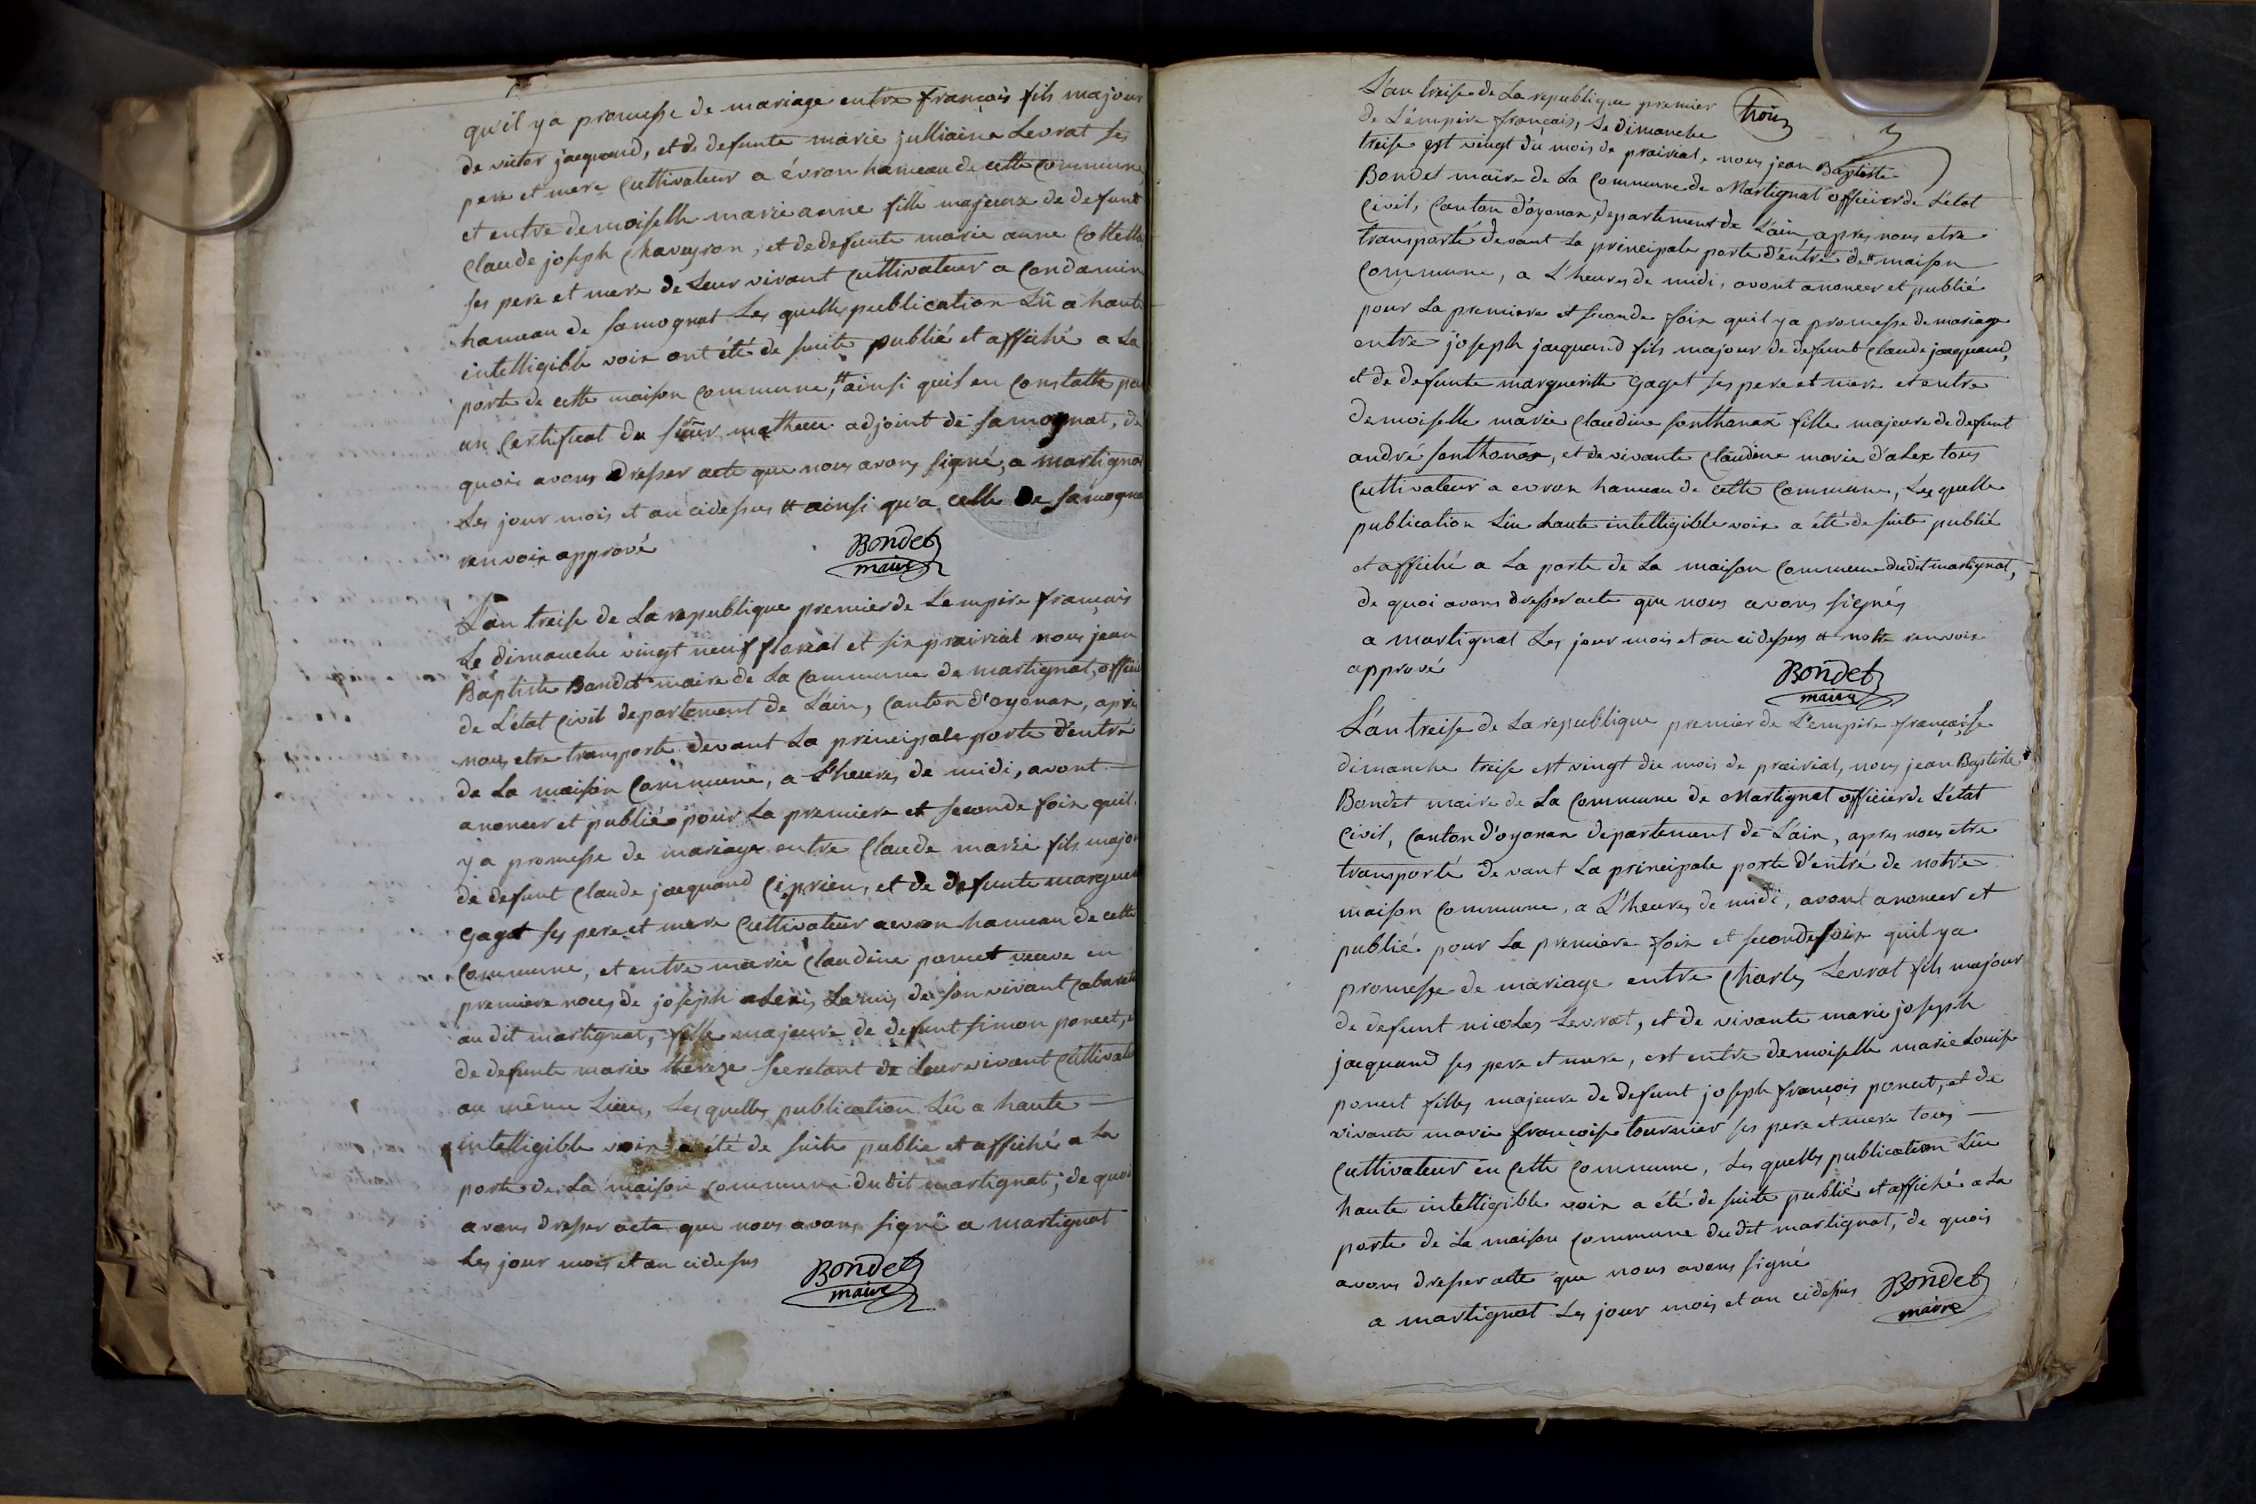 qu'il ya promesse de mariage entre françois fils majour
de victor jacquand, et de defunte marie julliaine Levrat ses
pere et mere cultivateur a évron hameau de cette commune
et entre demoiselle marie anne fille majeure de defunt
Claude joseph Chaveyron, et de defunte marie anne Collett
ses pere et mere de Leur vivant cultivateur a Condamin
hameau de samognat Les quelles publication Lû a haute
intelligible voix ont été de suite publié et affiché a La
porte de cette maison commune, # ainsi quil en constatte pa
un Certificat du sieur mathieu adjoint de samognat, de
quoi avons dresser acte que nous avons signé, a martigna
Les jour mois et an cidessus # ainsi qu'a celle de samogna
renvoix apprové
Bondet
maire
L'an treise de La republique premier de L'empire français
Le dimanche vingt neuf floréal et six prairial nous jean
Baptiste Bondet maire de La commune de martignat, offici
de L'état civil departement de L'ain, canton d'oyonax, aprè
nous etre transporté devant La principale porte d'entré
de La maison commune, a L'heures de midi, avont
anoncer et publié pour La premiere et seconde foix quil
y a promesse de mariage entre Claude marie fils major
de defunt Claude jacquand Ciprien, et de defunte margueri
gaget ses pere et mere cultivateur a evron hameau de cette
commune, et entre marie Claudine poncet veuve en
premiere noces de joseph alexis Lanis de son vivant cabaret
au dit martignat, fille majeure de defunt simon poncet, e
de defunte marie thereze secretant de Leur vivant cultivate
au même Lieu, Les quelles publication Lû a haute
intelligible voix a été de suite publié et affiché a La
porte de La maison commune dudit martignat; de quoi
avons dresser acte que nous avons signé a martignat
Les jour mois et an cidessus
Bondet
maire
L'an treise de La republique premier
trois
de L'empire français, Le dimanche
treise est vingt du mois de prairial, nous jean Baptiste
Bondet maire de La Commune de Martignat officier de L'état
Civil, Canton d'oyonax, departement de L'ain, apres nous etre
transporté devant La principale porte d'entré de # maison
commune, a L'heures de midi, avont anoncer et publié
pour La premiere et seconde foix quil ya promesse de mariage
entre joseph jacquand fils majour de defunt Claude jacquand,
et de defunte margueritte gaget ses pere et mere et entre
demoiselle marie Claudine sonthonax fille majeure de defunt
andré sonthonax, et de vivante Claudine marie d'alex tous
cultivateur a evron hameau de cette commune, Les quelle
publication Lûe haute intelligible voix a été de suite publié
et affiché a La porte de La maison commune dudit martignat,
de quoi avons dresser acte que nous avons signés
a martignat Les jour mois et an cidessus # notre renvoix
apprové
Bondet
maire
L'an treise de La republique premier de L'empire française
dimanche treise est vingt du mois de prairial, nous jean Baptiste
Bondet maire de La Commune de Martignat officier de L'état
Civil, canton d'oyonax departement de L'ain, apres nous etre
transporté devant La principale porte d'entré de notre
maison commune, a L'heures de midi, avont anoncer et
publié pour La premiere foix et seconde foix quil ya
promesse de mariage entre Charles Levrat fils majour
de defunt nicolas Levrat, et de vivante marie joseph
jacquand ses pere et mere, est entre demoiselle marie Louise
poncet filles majeure de defunt joseph françois poncet, et de
vivante marie françoise tournier ses pere et mere tous
cultivateur en cette commune, Les quelles publication Lûe
haute intelligible voix a été de suite publié et affiché a La
porte de La maison commune dudit martignat, de quoi
avons dresser acte que nous avons signé
a martignat Les jour mois et an cidessus
Bondet
maire